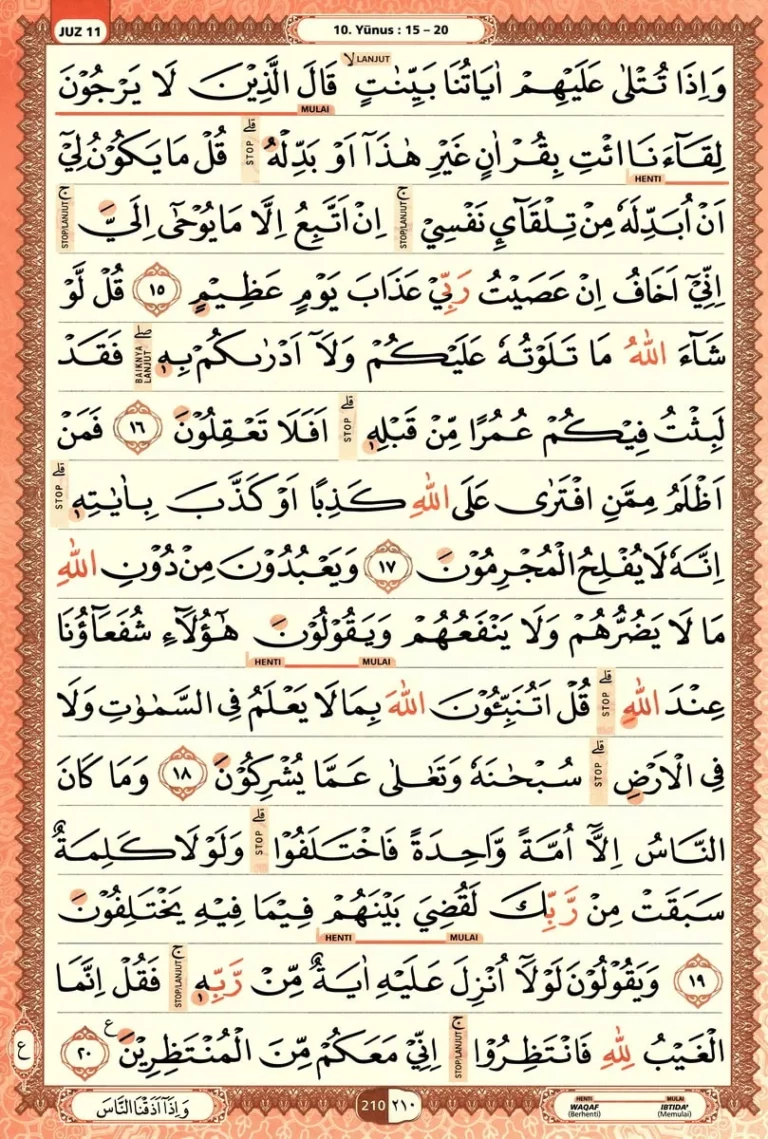 JUZ 11
10. Yūnus : 15 – 20
LANJUT
وَاِذَا تُتْلٰى عَلَيْهِمْ اٰيَاتُنَا بَيِّنٰتٍۙ قَالَ الَّذِيْنَ لَا يَرْجُوْنَ
MULAI
لِقَاۤءَنَا ائْتِ بِقُرْاٰنٍ غَيْرِ هٰذَآ اَوْ بَدِّلْهُۗ قُلْ مَا يَكُوْنُ لِيْٓ
STOP
HENTI
اَنْ اُبَدِّلَهٗ مِنْ تِلْقَاۤئِ نَفْسِيْۚ اِنْ اَتَّبِعُ اِلَّا مَا يُوْحٰٓى اِلَيَّۚ
STOP/LANJUT
STOP/LANJUT
اِنِّيْٓ اَخَافُ اِنْ عَصَيْتُ رَبِّيْ عَذَابَ يَوْمٍ عَظِيْمٍ ١٥ قُلْ لَّوْ
شَاۤءَ اللّٰهُ مَا تَلَوْتُهٗ عَلَيْكُمْ وَلَآ اَدْرٰىكُمْ بِهٖۖ فَقَدْ
BAIKNYA LANJUT
لَبِثْتُ فِيْكُمْ عُمُرًا مِّنْ قَبْلِهٖۗ اَفَلَا تَعْقِلُوْنَ ١٦ فَمَنْ
STOP
اَظْلَمُ مِمَّنِ افْتَرٰى عَلَى اللّٰهِ كَذِبًا اَوْ كَذَّبَ بِاٰيٰتِهٖۗ
STOP
اِنَّهٗ لَا يُفْلِحُ الْمُجْرِمُوْنَ ١٧ وَيَعْبُدُوْنَ مِنْ دُوْنِ اللّٰهِ
مَا لَا يَضُرُّهُمْ وَلَا يَنْفَعُهُمْ وَيَقُوْلُوْنَ هٰٓؤُلَاۤءِ شُفَعَاۤؤُنَا
HENTI MULAI
عِنْدَ اللّٰهِۗ قُلْ اَتُنَبِّـُٔوْنَ اللّٰهَ بِمَا لَا يَعْلَمُ فِى السَّمٰوٰتِ وَلَا
STOP
فِى الْاَرْضِۗ سُبْحٰنَهٗ وَتَعٰلٰى عَمَّا يُشْرِكُوْنَ ١٨ وَمَا كَانَ
STOP
النَّاسُ اِلَّآ اُمَّةً وَّاحِدَةً فَاخْتَلَفُوْاۗ وَلَوْلَا كَلِمَةٌ
STOP
سَبَقَتْ مِنْ رَّبِّكَ لَقُضِيَ بَيْنَهُمْ فِيْمَا فِيْهِ يَخْتَلِفُوْنَ
HENTI MULAI
١٩ وَيَقُوْلُوْنَ لَوْلَآ اُنْزِلَ عَلَيْهِ اٰيَةٌ مِّنْ رَّبِّهٖۚ فَقُلْ اِنَّمَا
STOP/LANJUT
الْغَيْبُ لِلّٰهِ فَانْتَظِرُوْاۚ اِنِّيْ مَعَكُمْ مِّنَ الْمُنْتَظِرِيْنَ ࣖ ٢٠
STOP/LANJUT
ع
وَاِذَآ اَذَقْنَا النَّاسَ
210 ٢١٠
HENTI WAQAF (Berhenti)
MULAI IBTIDA' (Memulai)